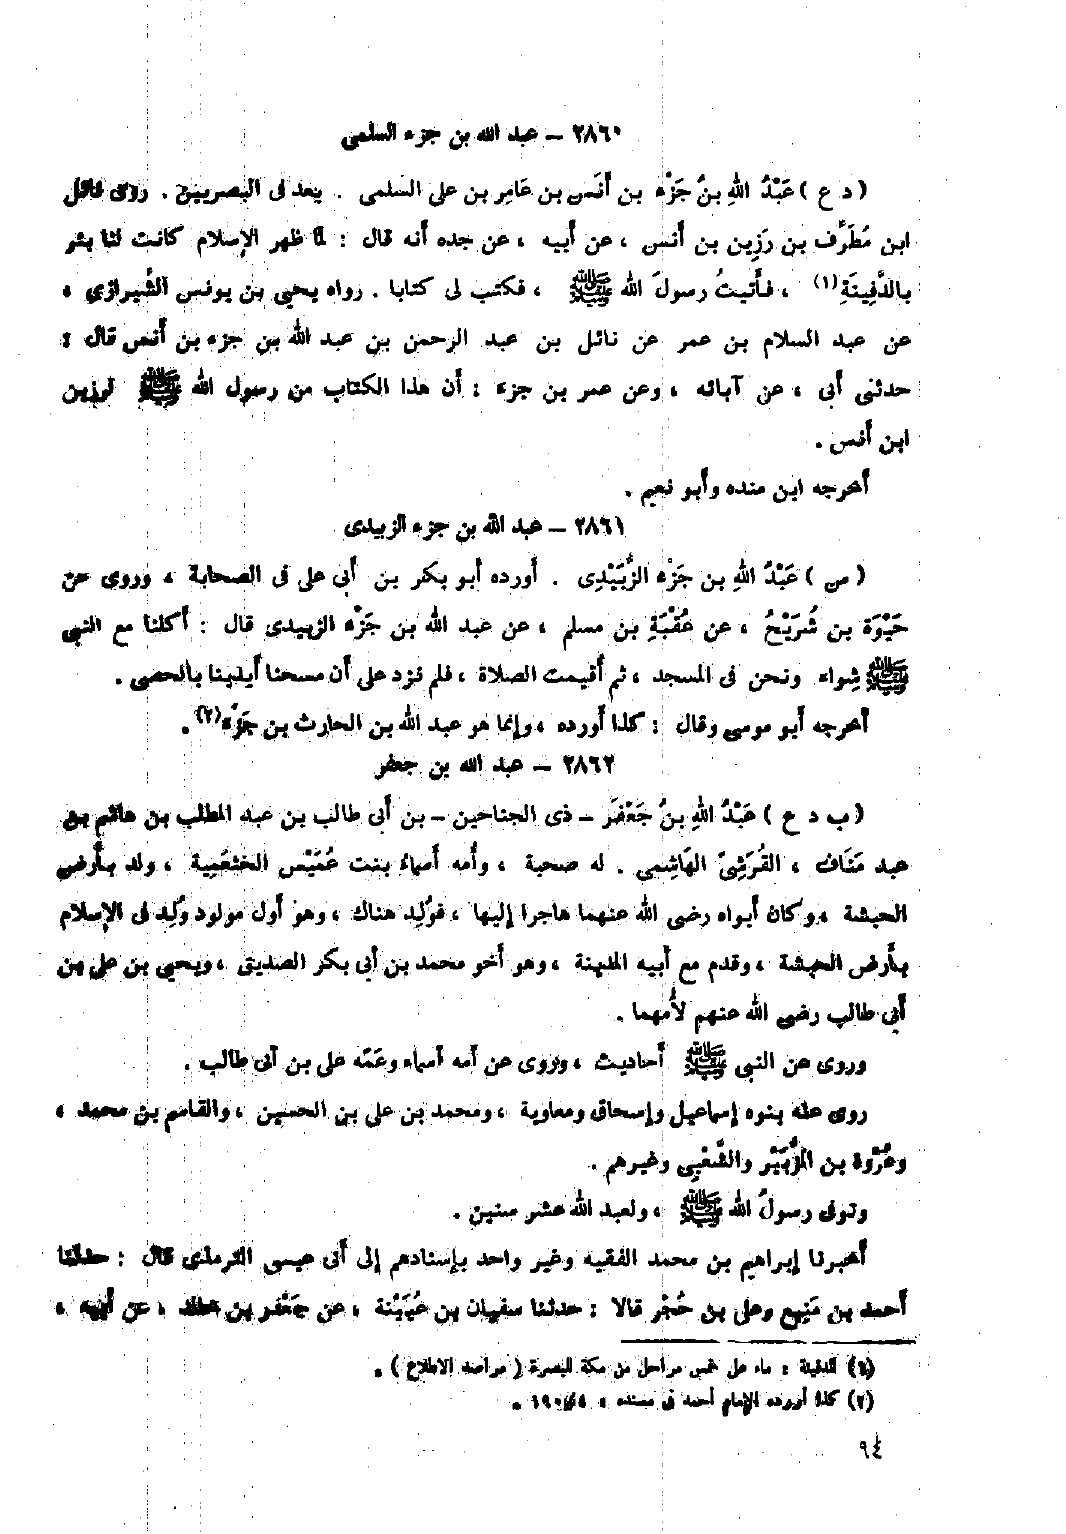 ٢٨٦٠ – عبد الله بن جزء السلمى
( د ع ) عَبْدُ اللهِ بنُ جَزْء بن أَنَس بن عَامِر بن على السلمى . يعد فى البصريين . روى نائل
ابن مُطَرِّف بن رَزِين بن أَنس ، عن أَبيه ، عن جده أَنه قال : لما ظهر الإسلام كانت لنا بئر
بالدَّفِينَةِ(١) ، فأَتيتُ رسولَ الله ﷺ ، فكتب لى كتابا . رواه يحيى بن يونس الشِّيرازى ،
عن عبد السلام بن عمر عن نائل بن عبد الرحمن بن عبد الله بن جزء بن أَنس قال :
حدثنى أَبى ، عن آبائه ، وعن عمر بن جزء : أَن هذا الكتاب من رسول الله ﷺ لرزين
ابن أَنس .
أَخرجه ابن منده وأَبو نعيم .
٢٨٦١ – عبد الله بن جزء الزبيدى
( س ) عَبْدُ اللهِ بن جَزْء الزُّبَيْدِى . أَورده أَبو بكر بن أَبى على فى الصحابة ، وروى عن
حَيْوَة بن شُرَيْحُ ، عن عُقْبَةِ بن مسلم ، عن عبد الله بن جَزْء الزبيدى قال : أَكلنا مع النبى
ﷺ شِواء ونحن فى المسجد ، ثم أُقيمت الصلاة ، فلم نزد على أَن مسحنا أَيدينا بالحصى .
أَخرجه أَبو موسى وقال : كذا أَورده ، وإنما هو عبد الله بن الحارث بن جَزْء(٢) .
٢٨٦٢ – عبد الله بن جعفر
( ب د ع ) عَبْدُ اللهِ بنُ جَعْفَر – ذى الجناحين – بن أَبى طالب بن عبد المطلب بن هاشم بن
عبد مَنَاف ، القُرَشِىّ الهَاشِمى . له صحبة ، وأُمه أَسماءُ بنت عُمَيْس الخثعَمِية ، ولد بأَرض
الحبشة ، وكان أَبواه رضى الله عنهما هاجرا إليها ، فوُلِد هناك ، وهو أَول مولود وُلِد فى الإسلام
بأَرض الحبشة ، وقدم مع أَبيه المدينة ، وهو أَخو محمد بن أَبى بكر الصديق ، ويحيى بن على بن
أَبى طالب رضى الله عنهم لأُمهما .
وروى عن النبى ﷺ أَحاديث ، وروى عن أُمه أَسماء وعَمّه على بن أَبى طالب .
روى عنه بنوه إسماعيل وإسحاق ومعاوية ، ومحمد بن على بن الحسين ، والقاسم بن محمد ،
وعُرْوة بن الزُّبَيْر والشَّعْبِى وغيرهم .
وتوفى رسولُ الله ﷺ ، ولعبد الله عشر سنين .
أَخبرنا إبراهيم بن محمد الفقيه وغير واحد بإسنادهم إلى أَبى عيسى الترمذى قال : حدثنا
أَحمد بن مَنِيع وعلى بن حُجْر قالا : حدثنا سفيان بن عُيَيْنة ، عن جَعْفر بن خالد ، عن أَبيه ،
(١) الدفينة : ماء على خمس مراحل من مكة للبصرة ( مراصد الاطلاع ) .
(٢) كذا أورده الإمام أحمد فى مسنده : ٤ / ١٩٠ .
٩٤